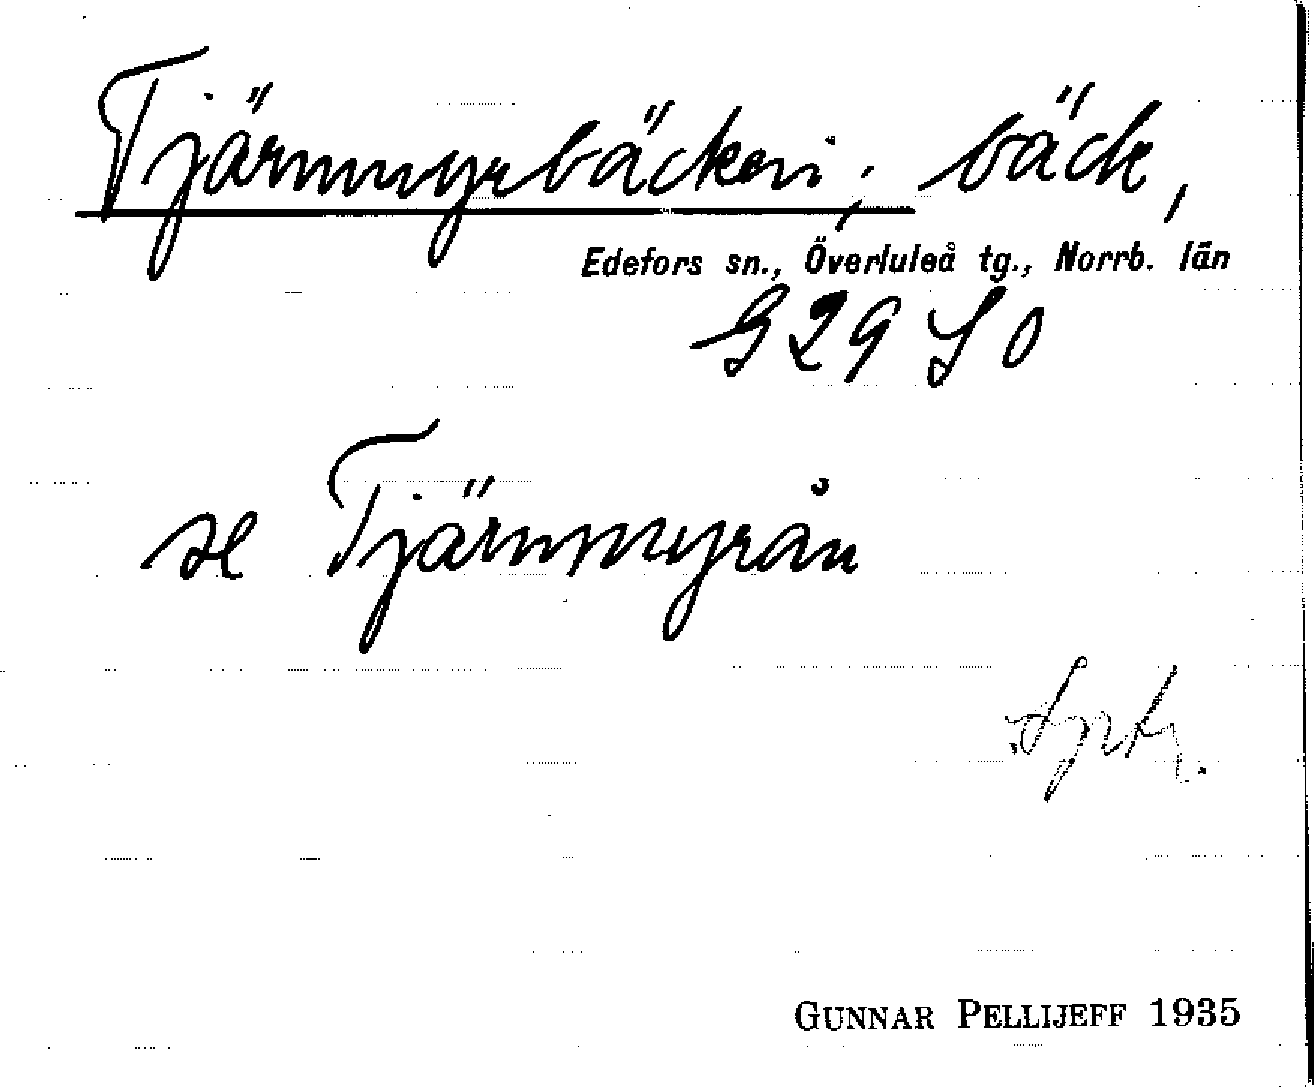 Tjärnmyrbäcken; bäck,
Edefors sn., Överluleå tg., Norrb. län
G 29 SO
se Tjärnmyrån
GUNNAR PELLIJEFF 1935